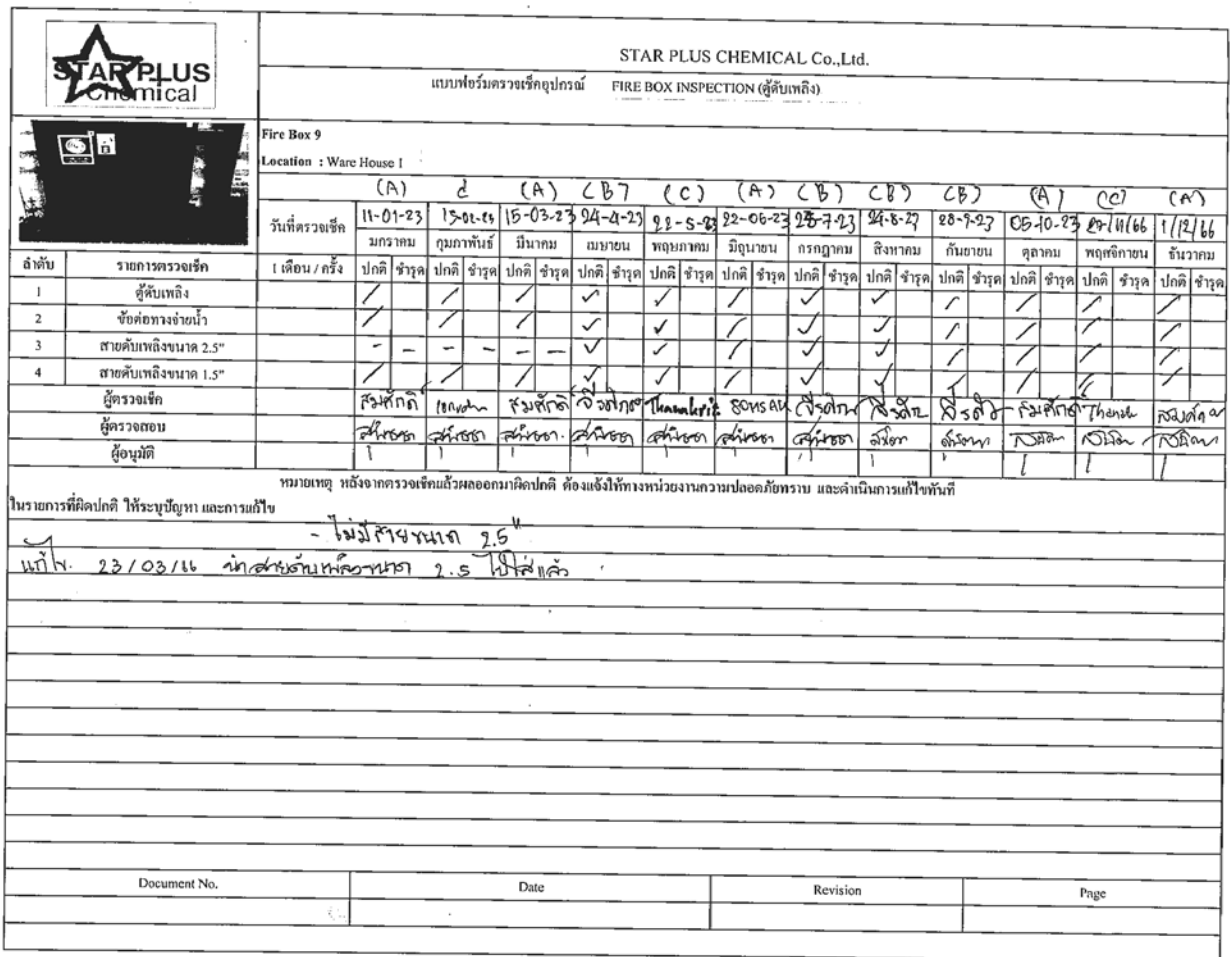 STAR PLUS
Chemical
STAR PLUS CHEMICAL Co.,Ltd.
แบบฟอร์มตรวจเช็คอุปกรณ์ FIRE BOX INSPECTION (ตู้ดับเพลิง)
Fire Box 9
Location : Ware House 1
(A) C (A) (B) (C) (A) (B) (B) (B) (A) (C) (A)
วันที่ตรวจเช็ค 11-01-23 15-03-23 24-4-23 22-5-23 22-06-23 24-8-23 28-9-23 05-10-23 1/12/66
มกราคม กุมภาพันธ์ มีนาคม เมษายน พฤษภาคม มิถุนายน กรกฎาคม สิงหาคม กันยายน ตุลาคม พฤศจิกายน ธันวาคม
ลำดับ รายการตรวจเช็ค 1 เดือน / ครั้ง ปกติ ชำรุด ปกติ ชำรุด ปกติ ชำรุด ปกติ ชำรุด ปกติ ชำรุด ปกติ ชำรุด ปกติ ชำรุด ปกติ ชำรุด ปกติ ชำรุด ปกติ ชำรุด ปกติ ชำรุด ปกติ ชำรุด
1 ตู้ดับเพลิง / / / ✓ ✓ / ✓ ✓ / / / /
2 ข้อต่อทางจ่ายน้ำ / / / ✓ ✓ / ✓ ✓ / / / /
3 สายดับเพลิงขนาด 2.5" - - - - - - ✓ ✓ / ✓ ✓ / / / /
4 สายดับเพลิงขนาด 1.5" / / / ✓ ✓ / ✓ ✓ / / / /
ผู้ตรวจเช็ค สมศักดิ์ สมศักดิ์ Thanakrit SOMSAK สมศักดิ์
ผู้ตรวจสอบ
ผู้อนุมัติ
หมายเหตุ หลังจากตรวจเช็คแล้วผลออกมาผิดปกติ ต้องแจ้งให้ทางหน่วยงานความปลอดภัยทราบ และดำเนินการแก้ไขทันที
ในรายการที่ผิดปกติ ให้ระบุปัญหา และการแก้ไข
- ไม่มีสายขนาด 2.5"
แก้ไข. 23/03/66 นำสายดับเพลิงขนาด 2.5 ไปใส่แล้ว
Document No. Date Revision Page